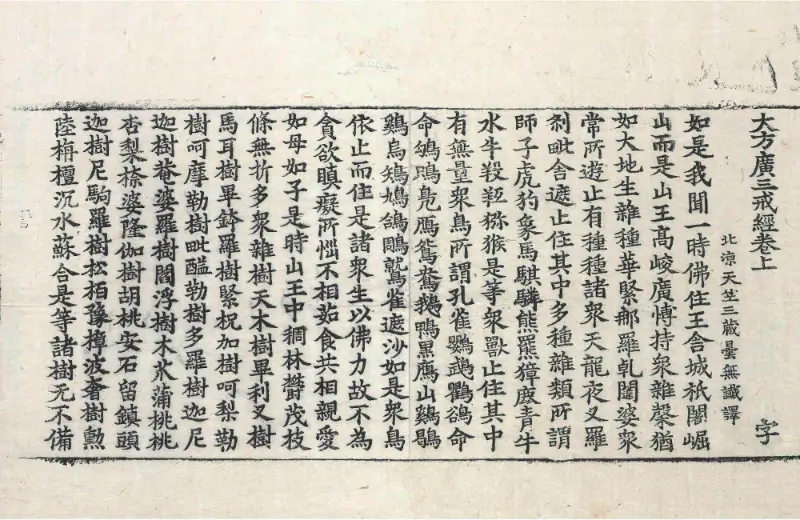 大方廣三戒經卷上　字
北涼天竺三藏曇無讖譯
如是我聞一時佛住王舍城祇闍崛
山而是山王高峻廣博持衆雜蘂猶
如大地生雜種華緊那羅乹闥婆衆
常所遊止有種種諸衆天龍夜叉羅
刹毗舍遮止住其中多種雜類所謂
師子虎豹象馬騏驎熊羆獐鹿青牛
水牛羖羝獼猴是等衆獸止住其中
有無量衆鳥所謂孔雀鸚鵡鸜鵒命
命鳧鴈鴛鴦鵝鴨黒鷹山鷄鶡
鷄烏鵄鳩鴿鵰鷲雀遮沙如是衆鳥
依止而住是諸衆生以佛力故不為
貪欲瞋癡所惱不相茹食共相親愛
如母如子是時山王中稠林欝茂枝
條無折多衆雜樹天木樹畢利叉樹
馬耳樹畢鉢羅樹緊柷加樹呵梨勒
樹呵摩勒樹毗醯勒樹多羅樹迦尼
迦樹菴婆羅樹閻浮樹木蒲桃桃
杏梨㮈婆隆伽樹胡桃安石留鎮頭
迦樹尼駒羅樹松栢豫樟波奢樹勲
陸栴檀沉水蘇合是等諸樹无不備